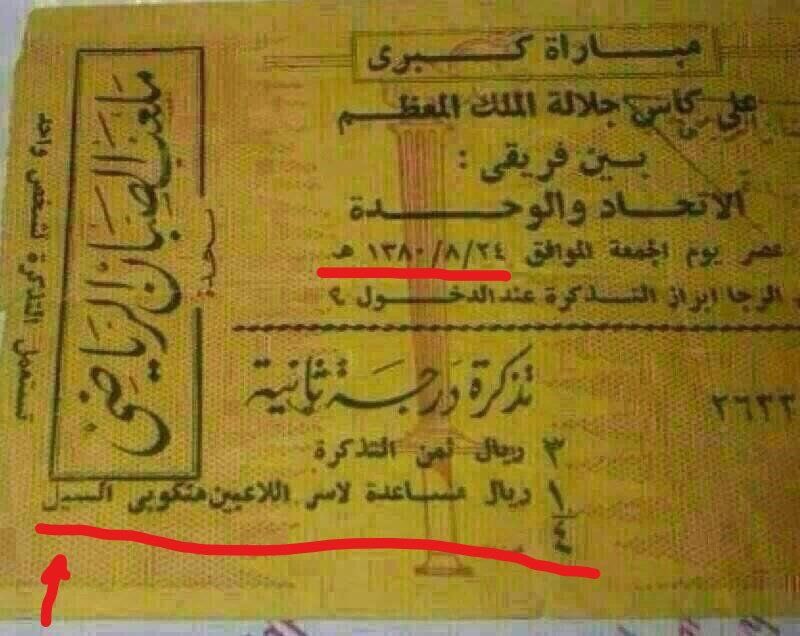 مباراة كبرى
على كاس جلالة الملك المعظم
بين فريقى :
الاتحاد والوحدة
عصر يوم الجمعة الموافق ١٣٨٠/٨/٢٤ هـ
الرجا ابراز التذكرة عند الدخول
تذكرة درجة ثانية
٢٦٣٣
٣ ريال ثمن التذكرة
١ ريال مساعدة لاسر اللاعبين منكوبى السيل
ملعب الصبان الرياضي
بجدة
تستعمل التذكرة لشخص واحد